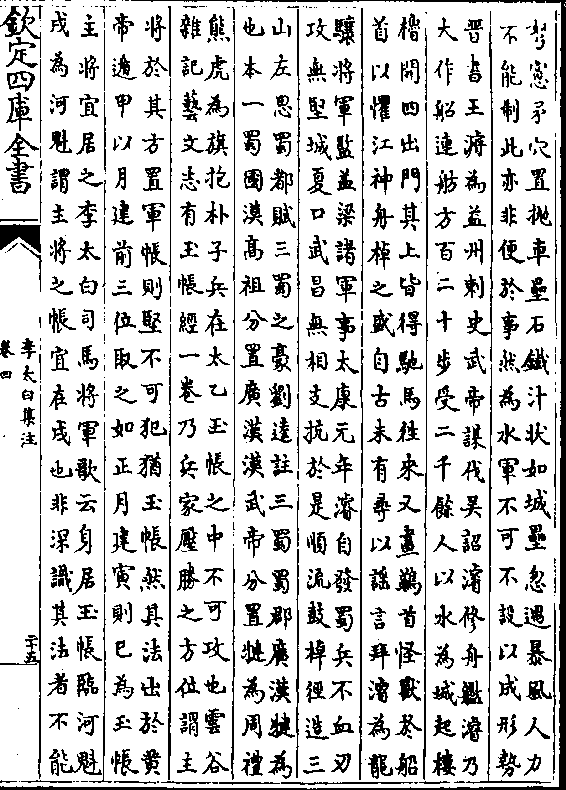 弩窻矛穴置抛車壘石鐵汁狀如城壘忽遇暴風人力
不能制此亦非便於事然為水軍不可不設以成形勢
晉書王濬為益州刺史武帝謀伐吳詔濬修舟艦濬乃
大作船連舫方百二十步受二千餘人以木為城起樓
櫓開四出門其上皆得馳馬徃來又畫鷁首怪獸於船
首以懼江神舟棹之盛自古未有尋以謡言拜濬為龍
驤將軍監益梁諸軍事太康元年濬自發蜀兵不血刃
攻無堅城夏口武昌無相支抗於是順流鼓棹徑造三
山左思蜀都賦三蜀之豪劉逵註三蜀蜀郡廣漢犍為
也本一蜀國漢高祖分置廣漢漢武帝分置犍為周禮
熊虎為旗抱朴子兵在太乙玉帳之中不可攻也雲谷
雜記藝文志有玉帳經一卷乃兵家壓勝之方位謂主
將於其方置軍帳則堅不可犯猶玉帳然其法出於黄
帝遁甲以月建前三位取之如正月建寅則巳為玉帳
主將宜居之李太白司馬將軍歌云身居玉帳臨河魁
戌為河魁謂主將之帳宜在戌也非深識其法者不能
欽定四庫全書
李太白集注
卷四
二十五